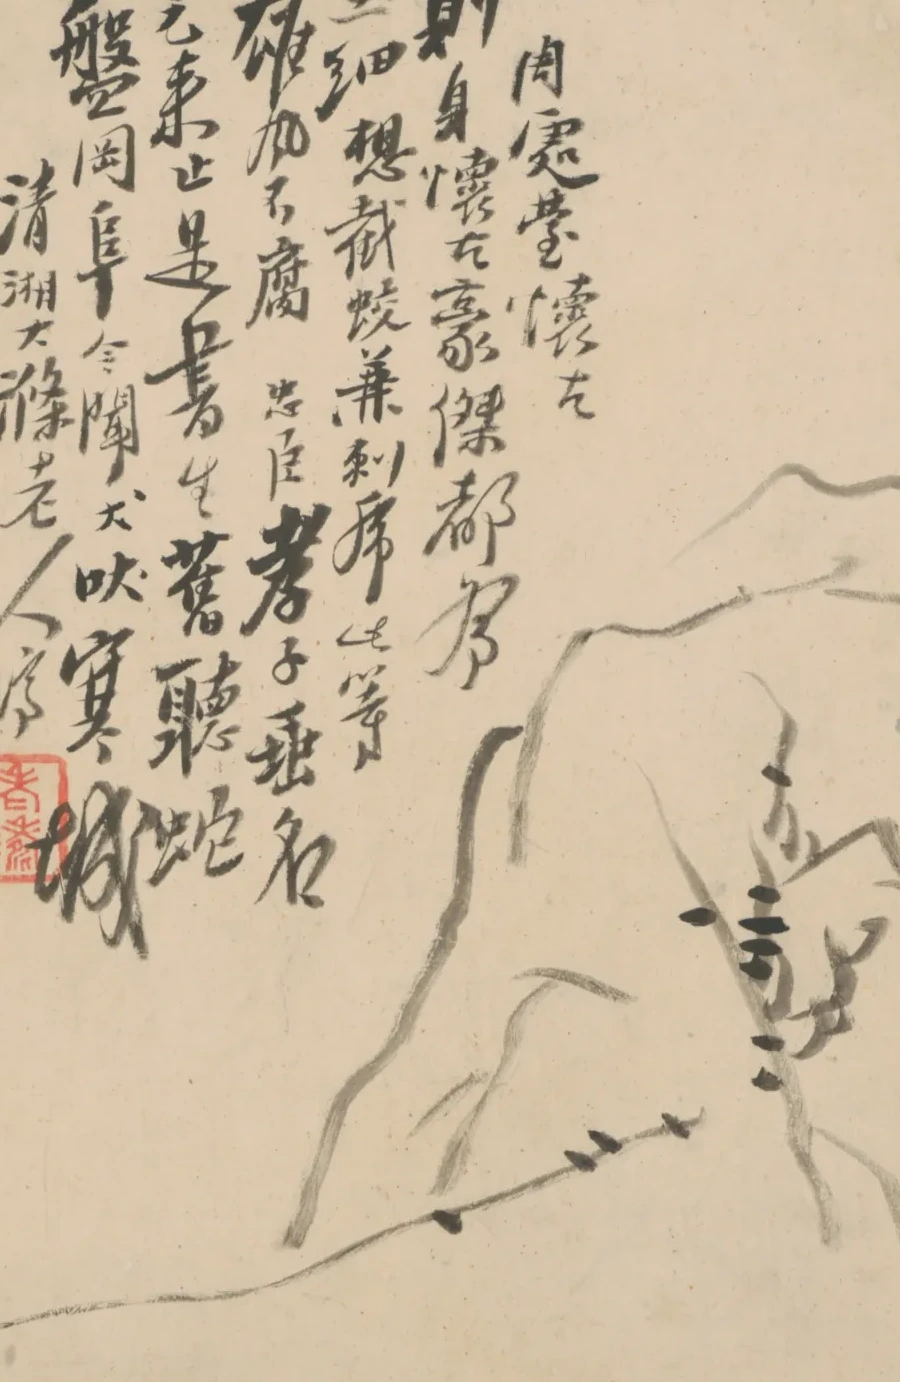 周處臺懷古
則身懷古豪傑都
三細想截蛟兼刺虎此等
雄風不腐 忠臣孝子垂名
元来止是書生舊聽蛇
盤岡阜今聞犬吠寒城
清湘大滌老人濟